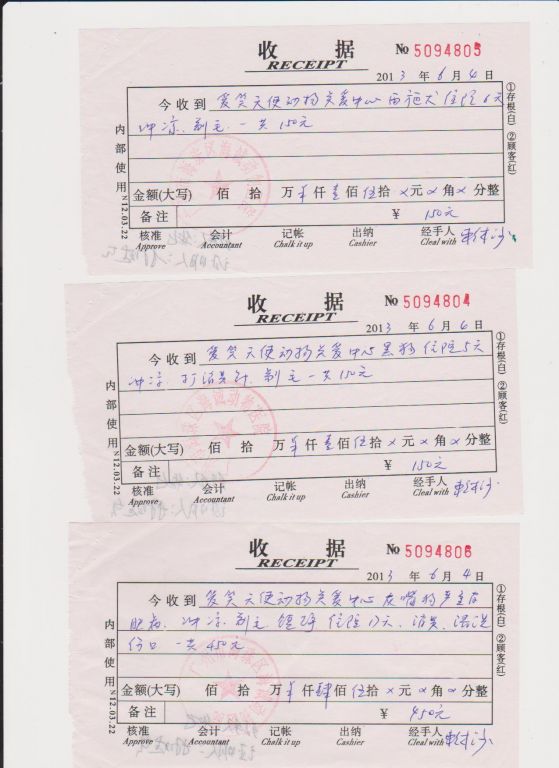 收 据 № 5094805
RECEIPT
2013 年 6 月 4 日
今收到 爱笑天使动物关爱中心 西施犬 住院6天
冲凉、剃毛 一共150元
金额(大写) 佰 拾 万 仟壹佰伍拾×元×角×分整
备注 ¥ 150元
核准 会计 记帐 出纳 经手人
Approve Accountant Chalk it up Cashier Cleal with
内部使用 N12.03.22
①存根(白) ②顾客(红)
收 据 № 5094804
RECEIPT
2013 年 6 月 6 日
今收到 爱笑天使动物关爱中心 黑狗 住院5天
冲凉、打消炎针、剃毛 一共150元
金额(大写) 佰 拾 万 仟壹佰伍拾×元×角×分整
备注 ¥ 150元
核准 会计 记帐 出纳 经手人
Approve Accountant Chalk it up Cashier Cleal with
内部使用 N12.03.22
①存根(白) ②顾客(红)
收 据 № 5094806
RECEIPT
2013 年 6 月 4 日
今收到 爱笑天使动物关爱中心 灰嘴狗
冲凉、剃毛 住院17天、消炎、清洗
伤口 一共450元
金额(大写) 佰 拾 万 仟肆佰伍拾×元×角×分整
备注 ¥ 450元
核准 会计 记帐 出纳 经手人
Approve Accountant Chalk it up Cashier Cleal with
内部使用 N12.03.22
①存根(白) ②顾客(红)